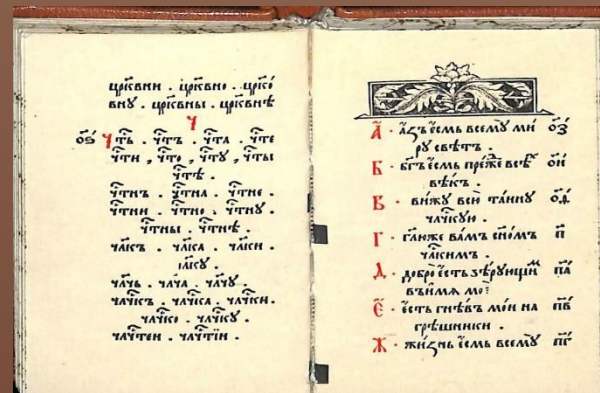 црк҃вни . црк҃вно . црк҃о
внꙋ . црк҃вны . црк҃внѣ
ч
о҃ѕ чт҃ь . чт҃ъ . чт҃а . чт҃е
чт҃и , чт҃о , чт҃ꙋ , чт҃ы
чт҃ѣ .
чт҃нъ . чт҃на . чт҃не .
чт҃ни . чт҃но . чт҃нꙋ .
чт҃ны . чт҃нѣ .
члк҃ъ . члк҃а . члк҃и .
члч҃ь . члч҃а . члч҃ꙋ .
члч҃къ . члч҃ка . члч҃ки .
члч҃ко . члч҃кꙋ .
члч҃тен . члч҃тїи .
А҃ · а҆́зъ є҆́смь всемꙋ̀ ми о҃з
рꙋ свѣ́тъ .
Б · бг҃ъ є҆́смь пре́же всѣ́х о҃и
вѣ́къ .
В · ви́жꙋ всю̀ та́инꙋ о҃д
члч҃кꙋю .
Г · гл҃ю же ва́мъ сн҃омъ п҃
члк҃имъ .
Д · добро̀ є҆́сть вѣ́рꙋющим п҃а
въ и҆́мѧ моѐ
Є҆ · є҆́сть гнѣ́въ мо́и на п҃в
грѣ́шники .
Ж · жи́знь є҆́смь всемꙋ̀ п҃г